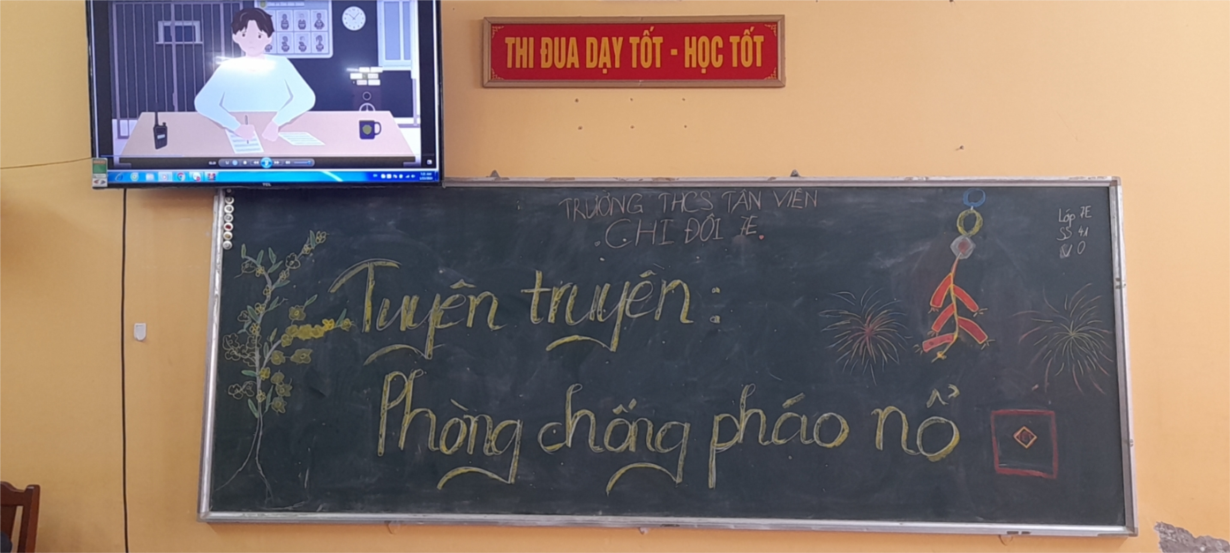 THI ĐUA DẠY TỐT - HỌC TỐT
TRƯỜNG THCS TÂN VIÊN
CHI ĐỘI 7E.
Lớp 7E
SS 41
0
Tuyên truyền:
Phòng chống pháo nổ
TCL